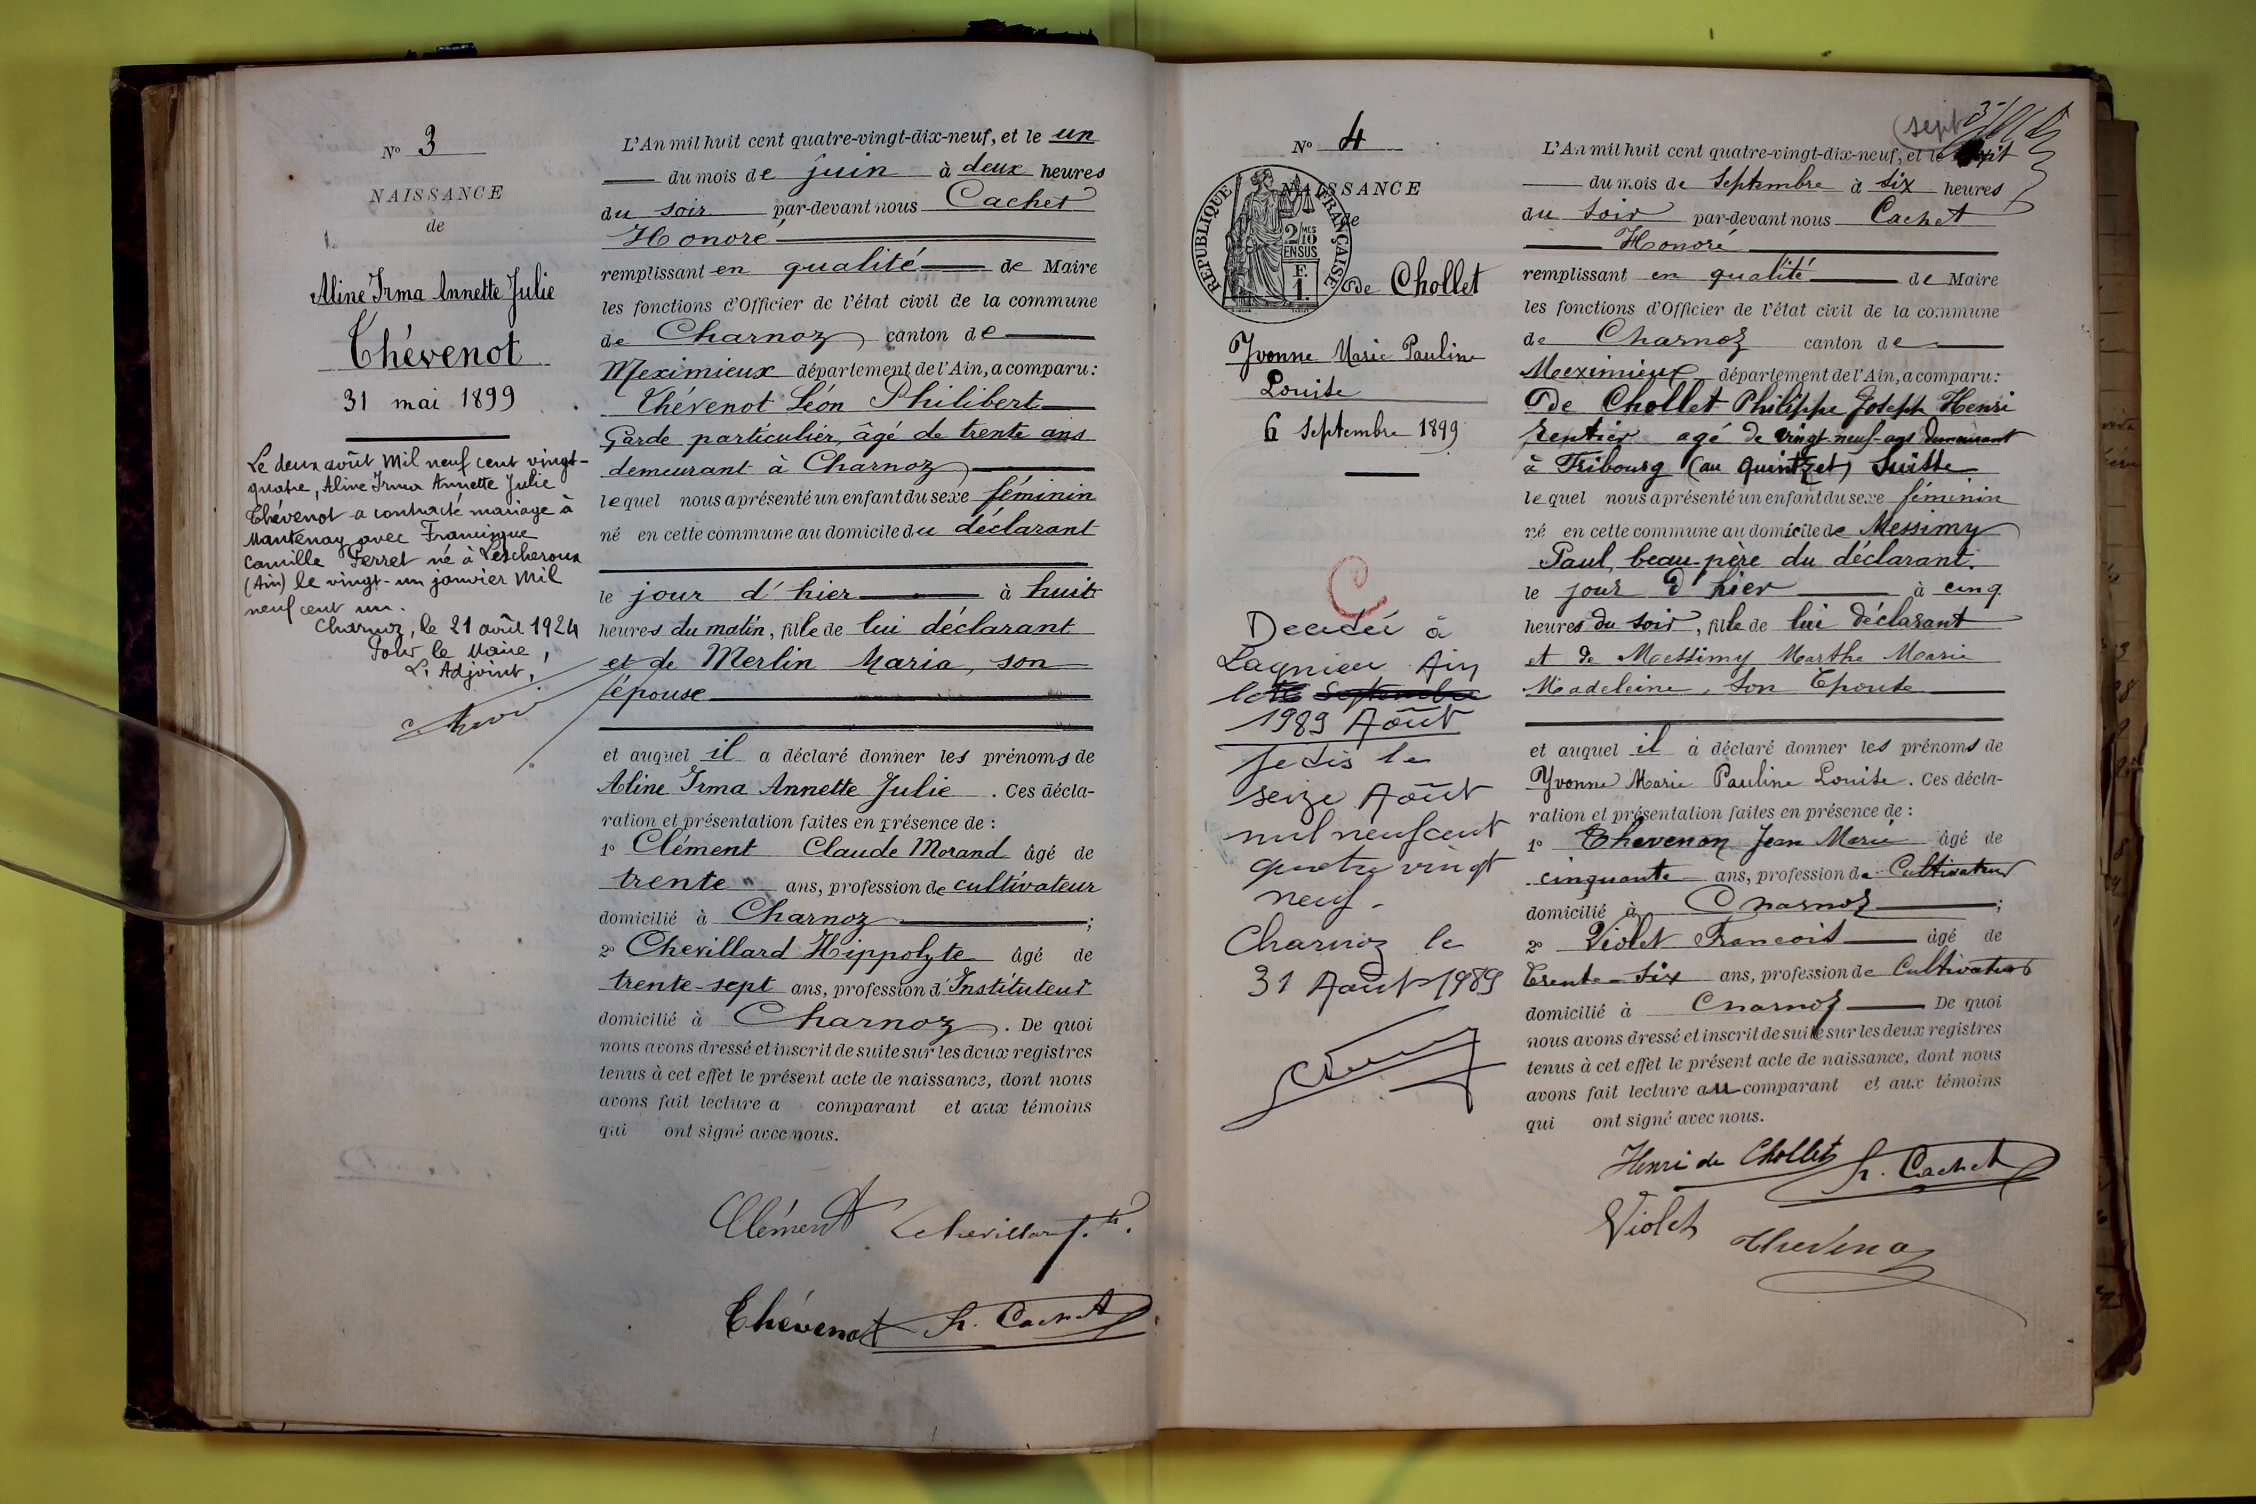 N° 3
NAISSANCE
de
Aline Irma Annette Julie
Thévenot
31 mai 1899
Le deux août mil neuf cent vingt-
quatre, Aline Irma Annette Julie
Thévenot a contracté mariage à
Mantenay avec Francisque
Camille Perret né à Lescheroux
(Ain) le vingt-un janvier mil
neuf cent un.
Charnoz, le 21 août 1924
Pour le Maire,
L'Adjoint,
L'An mil huit cent quatre-vingt-dix-neuf, et le un
du mois de juin à deux heures
du soir par-devant nous Cachet
Honoré
remplissant en qualité de Maire
les fonctions d'Officier de l'état civil de la commune
de Charnoz canton de
Meximieux département de l'Ain, a comparu :
Thévenot Léon Philibert
Garde particulier, âgé de trente ans
demeurant à Charnoz
lequel nous a présenté un enfant du sexe féminin
né en cette commune au domicile du déclarant
le jour d'hier à huit
heures du matin, fille de lui déclarant
et de Merlin Maria, son
épouse
et auquel il a déclaré donner les prénoms de
Aline Irma Annette Julie. Ces décla-
ration et présentation faites en présence de :
1° Clément Claude Morand âgé de
trente ans, profession de cultivateur
domicilié à Charnoz ;
2° Chevillard Hippolyte âgé de
trente-sept ans, profession d'Instituteur
domicilié à Charnoz. De quoi
nous avons dressé et inscrit de suite sur les deux registres
tenus à cet effet le présent acte de naissance, dont nous
avons fait lecture a comparant et aux témoins
qui ont signé avec nous.
Clément Chevillard
Thévenot H. Cachet
N° 4
NAISSANCE
de
RÉPUBLIQUE FRANÇAISE
2/10 MES
EN SUS
F.
1.
de Chollet
Yvonne Marie Pauline
Louise
6 Septembre 1899
C
Decedée à
Lagnieu Ain
le septembre
1989 Août
je dis le
seize Août
mil neuf cent
quatre vingt
neuf -
Charnoz le
31 Août 1989
(sept
L'An mil huit cent quatre-vingt-dix-neuf, et le sept
du mois de Septembre à six heures
du soir par-devant nous Cachet
Honoré
remplissant en qualité de Maire
les fonctions d'Officier de l'état civil de la commune
de Charnoz canton de
Meximieux département de l'Ain, a comparu :
De Chollet Philippe Joseph Henri
rentier agé de vingt-neuf-ans demeurant
à Fribourg (au Quintzet) Suisse
lequel nous a présenté un enfant du sexe féminin
né en cette commune au domicile de Messimy
Paul, beau-père du déclarant.
le jour d'hier à cinq
heures du soir, fille de lui déclarant
et de Messimy Marthe Marie
Madeleine, son Epouse
et auquel il a déclaré donner les prénoms de
Yvonne Marie Pauline Louise. Ces décla-
ration et présentation faites en présence de :
1° Thevenon Jean Marie âgé de
cinquante ans, profession de Cultivateur
domicilié à Charnoz ;
2° Violet Francois âgé de
Trente-six ans, profession de Cultivateur
domicilié à Charnoz De quoi
nous avons dressé et inscrit de suite sur les deux registres
tenus à cet effet le présent acte de naissance, dont nous
avons fait lecture au comparant et aux témoins
qui ont signé avec nous.
Henri de Chollet H. Cachet
Violet Thévenon